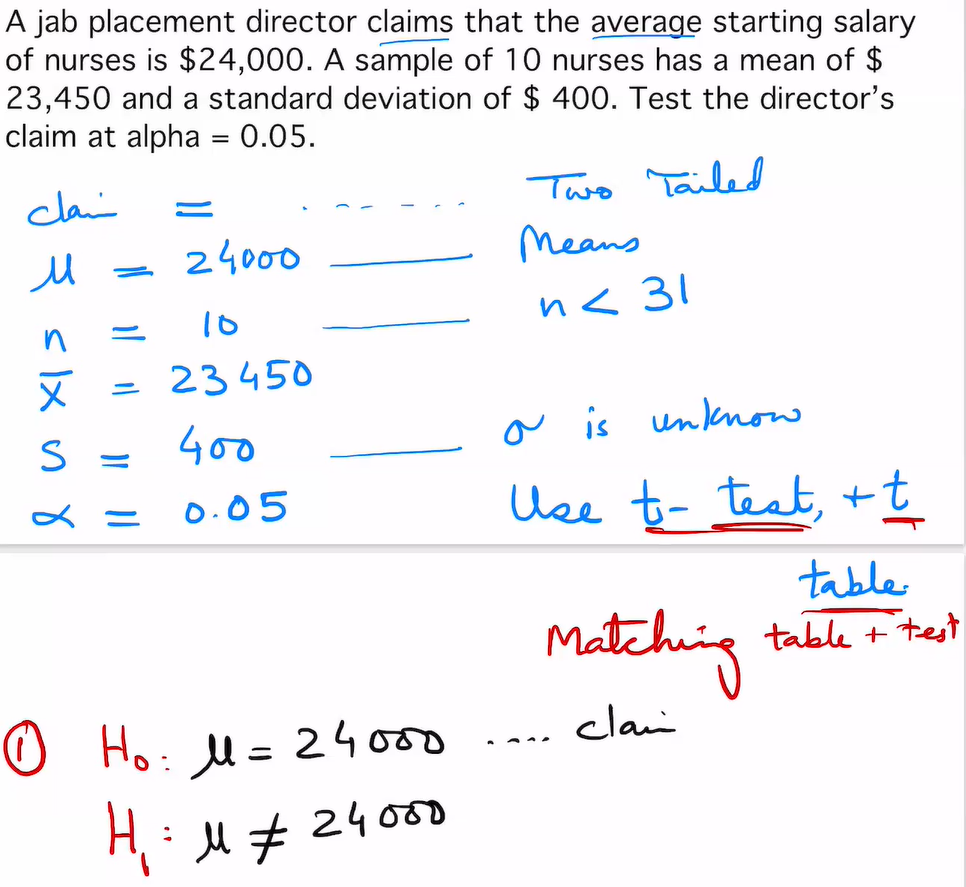 A jab placement director claims that the average starting salary
of nurses is $24,000. A sample of 10 nurses has a mean of $
23,450 and a standard deviation of $ 400. Test the director's
claim at alpha = 0.05.
clai = ....... Two Tailed
μ = 24000 Means
n = 10 n < 31
x̄ = 23450
s = 400 σ is unknow
α = 0.05 Use t- test, + t
table.
Matching table + test
① H₀: μ = 24000 .... clai
H₁: μ ≠ 24000